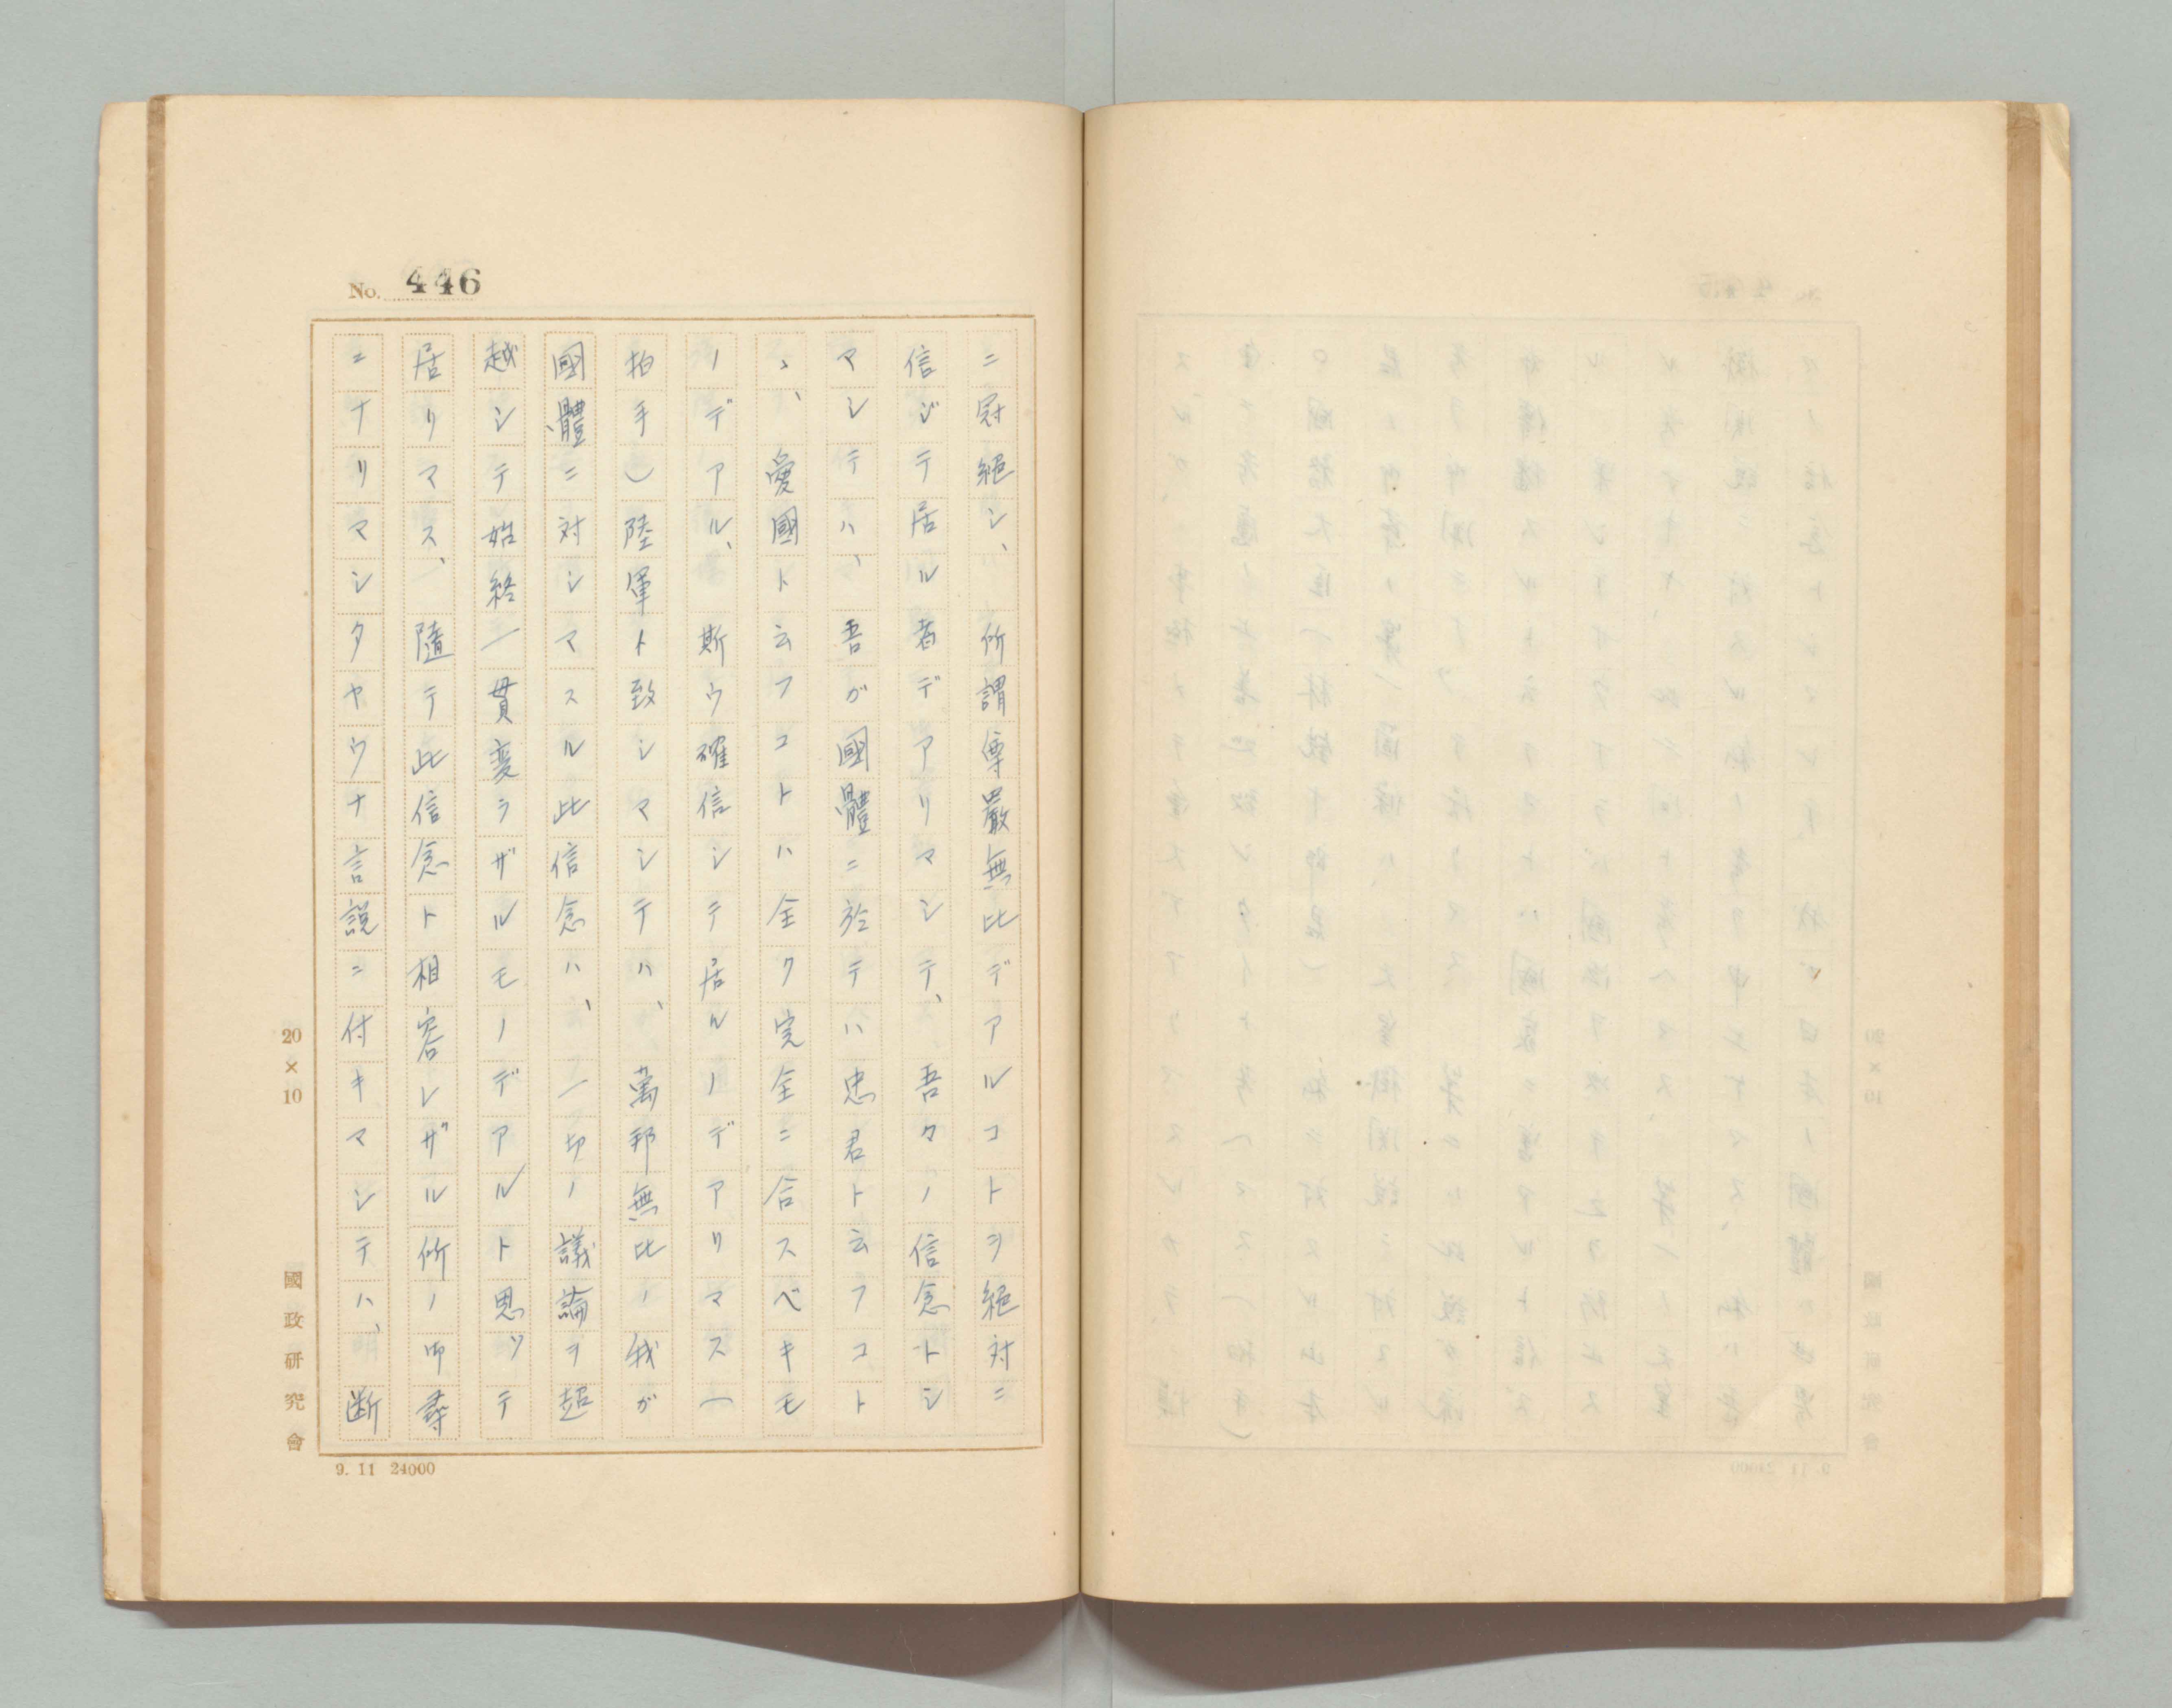 No. 446
ニ冠絶シ、所謂尊嚴無比デアルコトヲ絶対ニ
信ジテ居ル者デアリマシテ、吾々ノ信念トシ
マシテハ、吾ガ國體ニ於テハ忠君ト云フコト
ヽ、愛國ト云フコトハ全ク完全ニ合スベキモ
ノデアル、斯ウ確信シテ居ルノデアリマス(
拍手)陸軍ト致シマシテハ、萬邦無比ノ我ガ
國體ニ対シマスル此信念ハ、一切ノ議論ヲ超
越シテ始終一貫変ラザルモノデアルト思ッテ
居リマス、隨テ此信念ト相容レザル所ノ御尋
ニナリマシタヤウナ言説ニ付キマシテハ、断
20×10
國政研究會
9. 11 24000